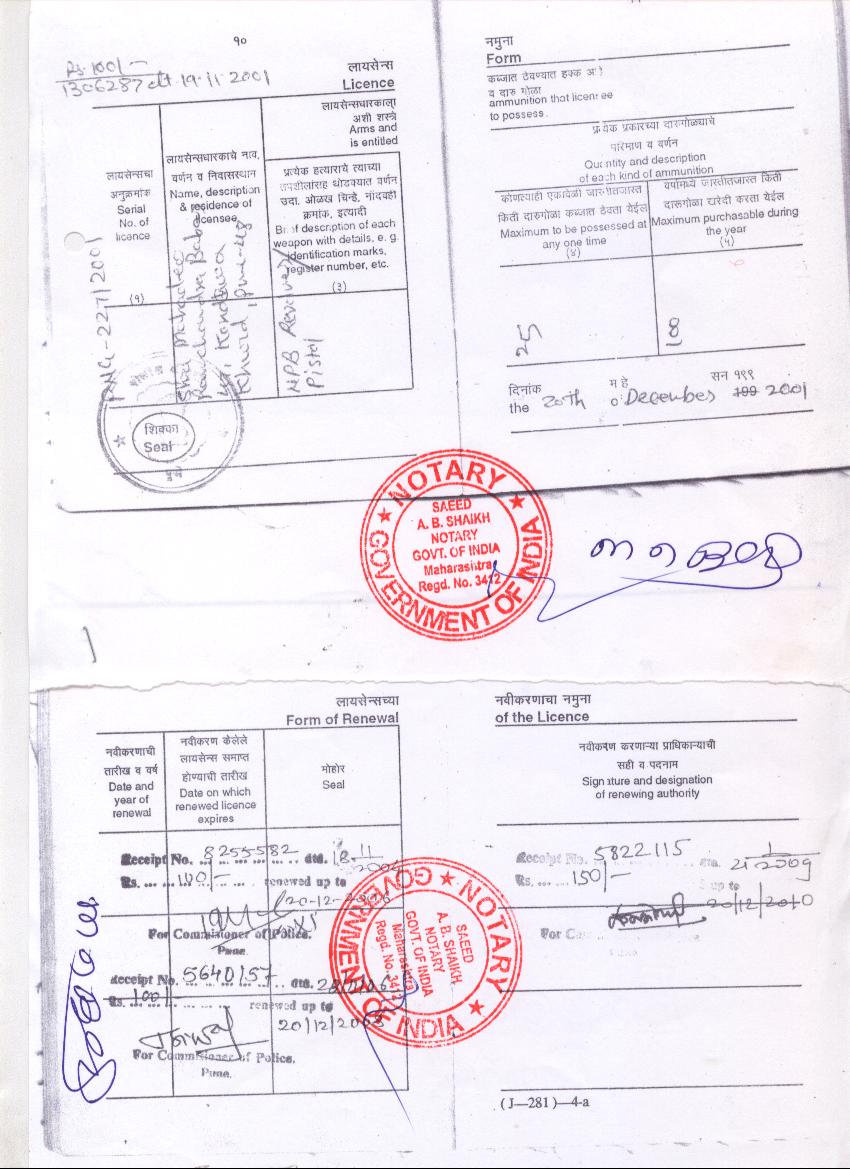 १०
Rs. 100/-
1306287 dt. 19.11.2001
लायसेन्स
Licence
लायसेन्सधारकाला
अशी शस्त्रे
Arms and
is entitled
लायसेन्सचा
अनुक्रमांक
Serial
No. of
licence
(१)
लायसेन्सधारकाचे नाव,
वर्णन व निवासस्थान
Name, description
& residence of
licensee
प्रत्येक हत्याराचे त्याच्या
तपशीलांसह थोडक्यात वर्णन
उदा. ओळख चिन्हे, नोंदवही
क्रमांक, इत्यादी
Brief description of each
weapon with details, e. g.
identification marks,
register number, etc.
(३)
Shri Mahadeo
Ramchandra Babar
Kondhwa
Khurd, Pune-48
NPB Revolver/
Pistol
शिक्का
Seal
नमुना
Form
कब्जात ठेवण्यात हक्क
व दारु गोळा
ammunition that licensee
to possess.
प्रत्येक प्रकारच्या दारुगोळ्याचे
परिमाण व वर्णन
Quantity and description
of each kind of ammunition
कोणत्याही एकावेळी जास्तीतजास्त
किती दारुगोळा कब्जात ठेवता येईल
Maximum to be possessed at
any one time
(४)
वर्षामध्ये जास्तीतजास्त किती
दारुगोळा खरेदी करता येईल
Maximum purchasable during
the year
(५)
25
दिनांक माहे सन १९९
the 20th December 199 2001
NOTARY
GOVERNMENT OF INDIA
SAEED
A. B. SHAIKH
NOTARY
GOVT. OF INDIA
Maharashtra
Regd. No. 3412
लायसेन्सच्या
Form of Renewal
नवीकरणाची
तारीख व वर्ष
Date and
year of
renewal
नवीकरण केलेले
लायसेन्स समाप्त
होण्याची तारीख
Date on which
renewed licence
expires
मोहोर
Seal
Receipt No. 8255582 dtd. 18.11
Rs. 100/- renewed up to
20-12-2006
For Commissioner of Police.
Pune.
Receipt No. 5640157 dtd.
Rs. 100/- renewed up to
20/12/2008
For Commissioner of Police.
Pune.
नवीकरणाचा नमुना
of the Licence
नवीकरण करणाऱ्या प्राधिकाऱ्याची
सही व पदनाम
Signature and designation
of renewing authority
Receipt No. 5822115 dtd. 2009
Rs. 150/- up to
20/12/2010
For
NOTARY
GOVERNMENT OF INDIA
SAEED
A. B. SHAIKH
NOTARY
GOVT. OF INDIA
Maharashtra
Regd. No. 3412
(J—281)—4-a